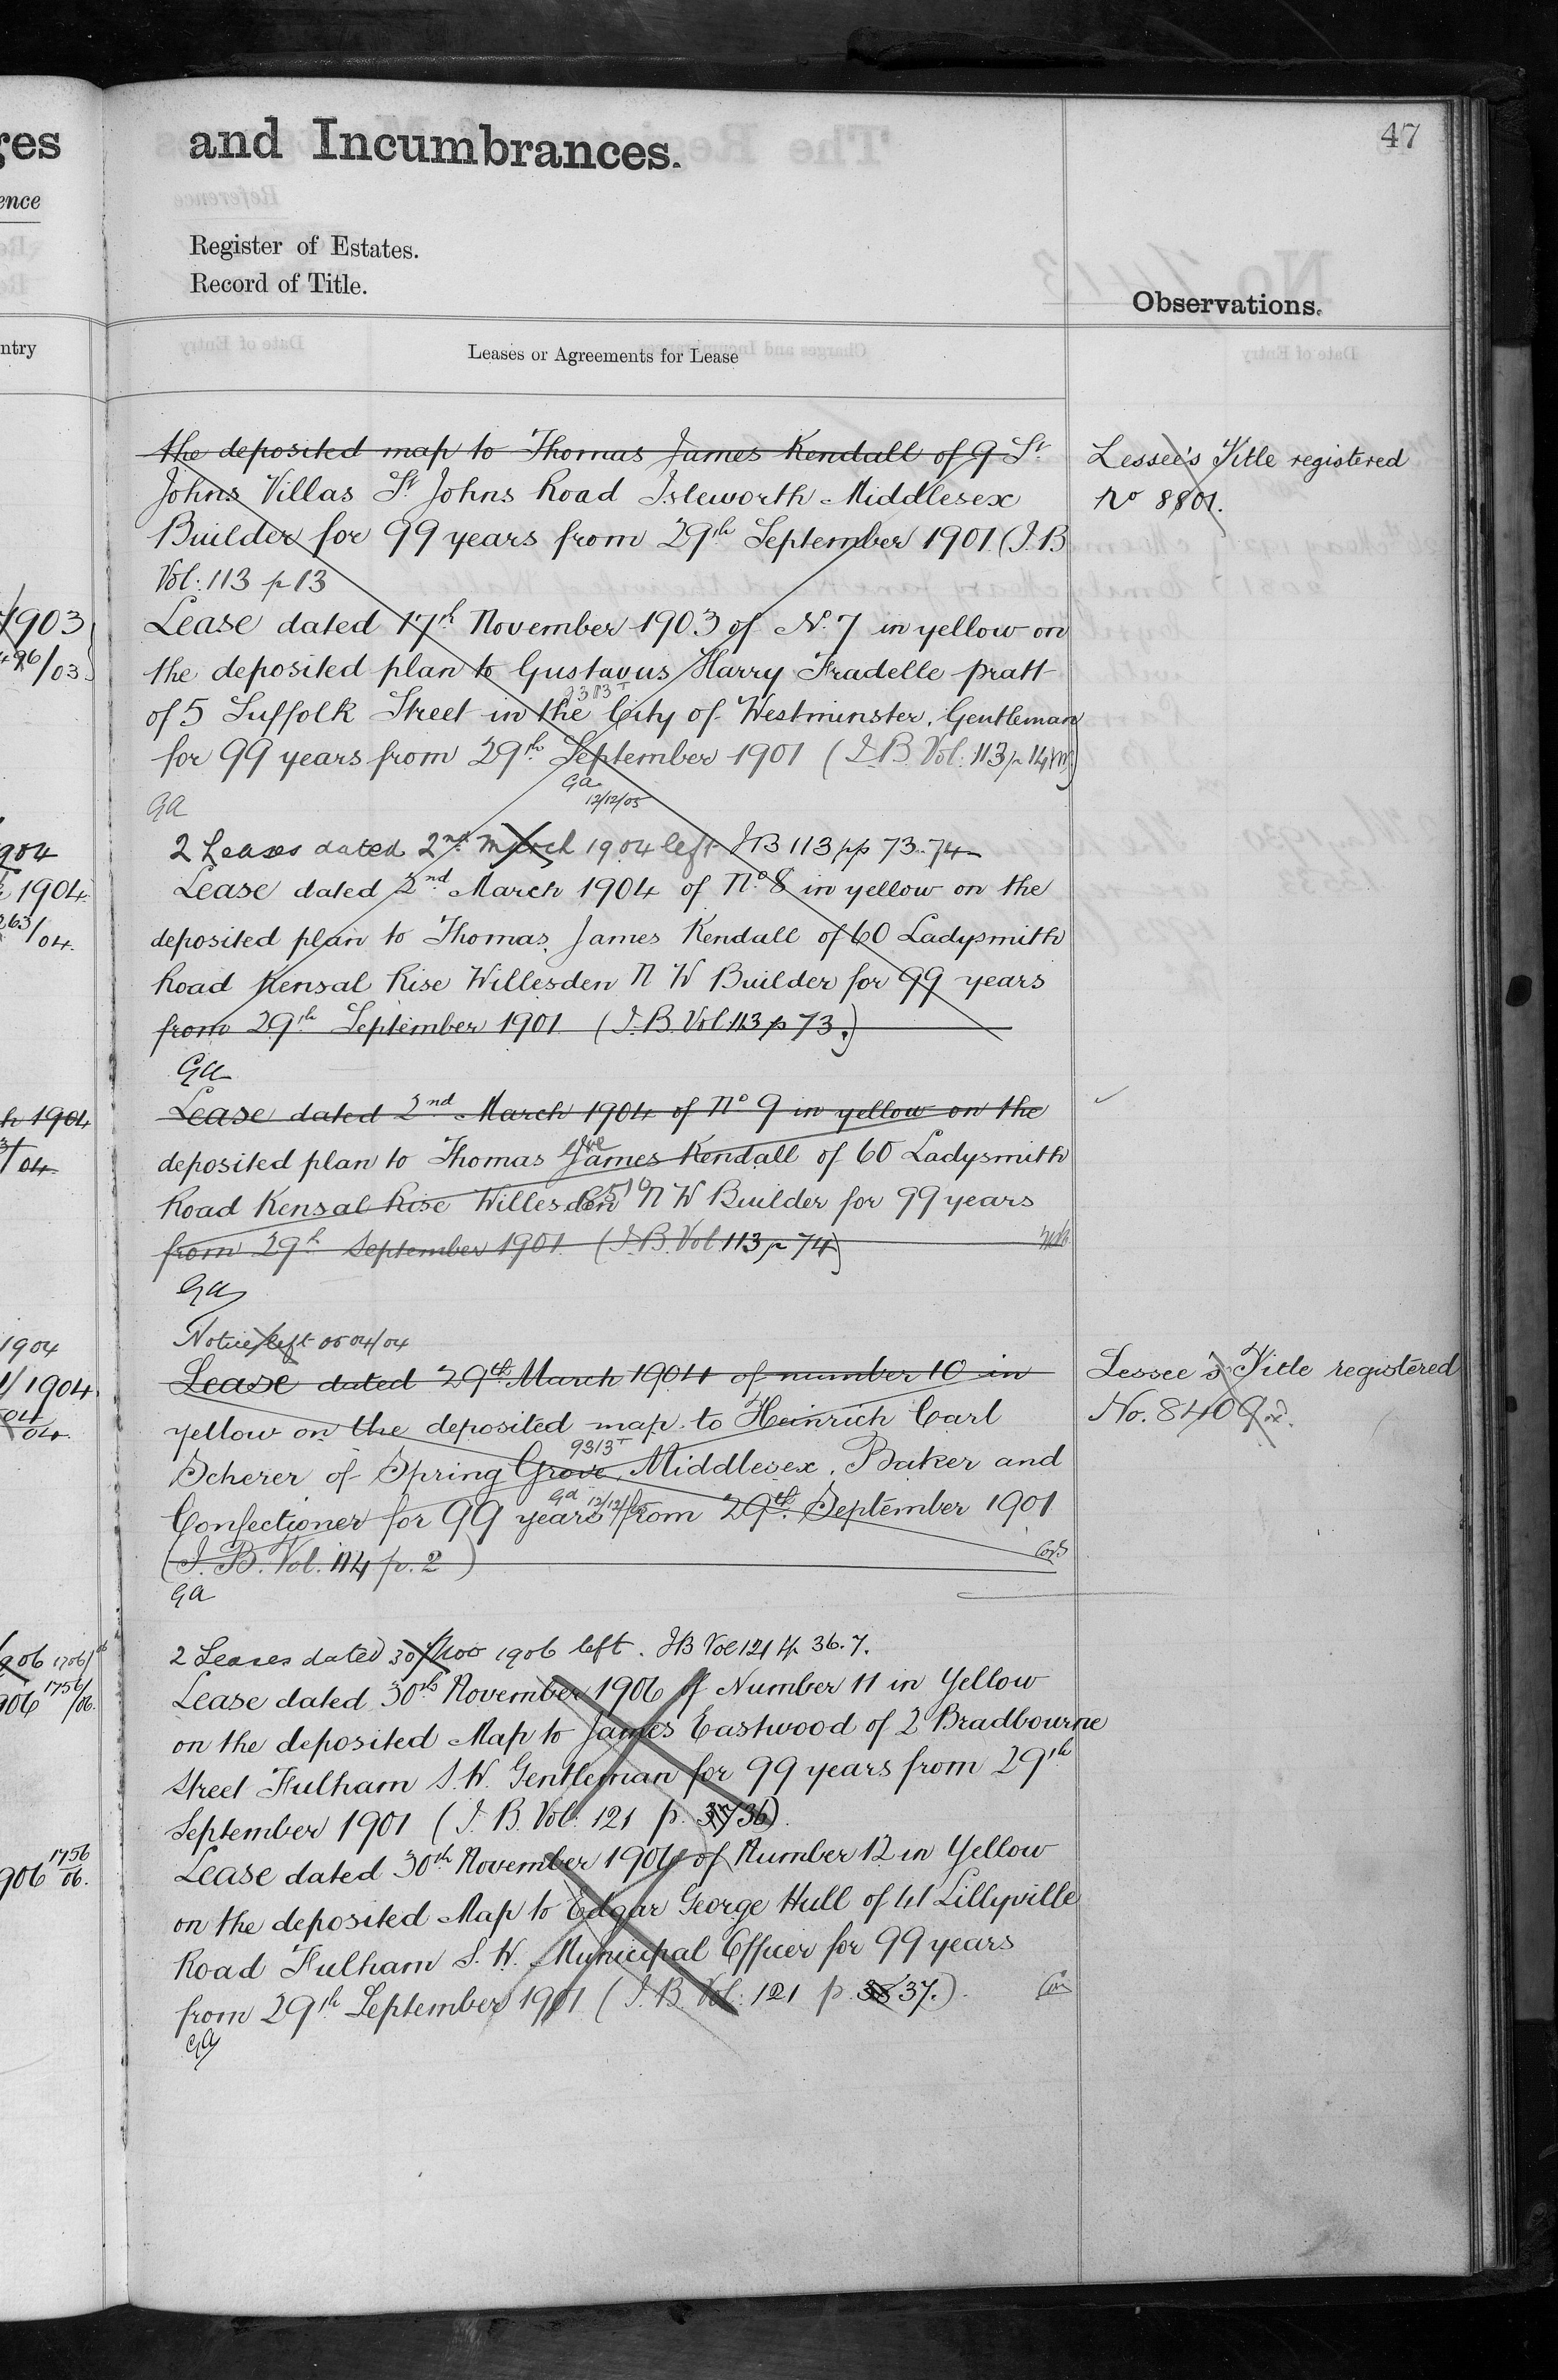 ges
ence
ntry
1903
496/03
904
1904
263/04
h 1904
04
1904
1904
04
04
906 1706/06
906 1756/06
906 1756/06.
and Incumbrances.
47
Register of Estates.
Record of Title.
Observations.
Leases or Agreements for Lease
the deposited map to Thomas James Kendall of 9 St
Johns Villas St Johns Road Isleworth Middlesex
Builder for 99 years from 29th September 1901 (I.B
Vol: 113 p 13
Lessee's Title registered
No 8801.
Lease dated 17th November 1903 of No. 7 in yellow on
the deposited plan to Gustavus Harry Fradelle Pratt
of 5 Suffolk Street in the City of Westminster, Gentleman
for 99 years from 29th September 1901 (I.B. Vol: 113 p 14)
Ga
12/12/05
GA
2 Leases dated 2nd March 1904 left IB 113 pp 73.74
Lease dated 2nd March 1904 of No 8 in yellow on the
deposited plan to Thomas James Kendall of 60 Ladysmith
Road Kensal Rise Willesden N W Builder for 99 years
from 29th September 1901 (I.B. Vol 113 p 73.)
Ga
Lease dated 2nd March 1904 of No 9 in yellow on the
deposited plan to Thomas James Kendall of 60 Ladysmith
Road Kensal Rise Willesden N W Builder for 99 years
from 29th September 1901 (I.B. Vol 113 p 74)
Ga
Notice left 05 04/04
Lease dated 29th March 1904 of number 10 in
yellow on the deposited map to Heinrich Carl
9313T
Scherer of Spring Grove, Middlesex, Baker and
Ga 12/12/05
Confectioner for 99 years from 29th September 1901
(I.B. Vol. 114 p. 2)
GA
Lessee's Title registered
No. 8409
2 Leases dated 30 Nov 1906 left. IB Vol 121 pp 36.7.
Lease dated 30th November 1906 of Number 11 in Yellow
on the deposited Map to James Eastwood of 2 Bradbourne
Street Fulham S.W. Gentleman for 99 years from 29th
September 1901 (I.B. Vol: 121 p. 37 36).
Lease dated 30th November 1906 of Number 12 in Yellow
on the deposited Map to Edgar George Hull of 41 Lillyville
Road Fulham S.W. Municipal Officer for 99 years
from 29th September 1901 (I.B. Vol: 121 p. 38 37.).
GA